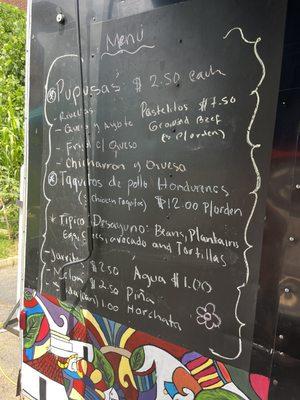 Menu
Pupusas $2.50 each
Revueltas
Pastelitos $7.50
- Queso y ayote
Ground Beef
- Frijol c/ Queso
(5 p/orden)
- Chicharron y Queso
Taqueros de pollo Hondurens
(5 Chicken Taquitos) $12.00 p/orden
* Tipico Desayuno: Beans, Plantains
Eggs, avocado and Tortillas
Jarritos $2.50 Agua $1.00
Melon $2.50 Piña
1.00 Horchata